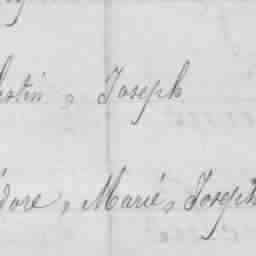 stin, Joseph
dore, Marie, Joseph